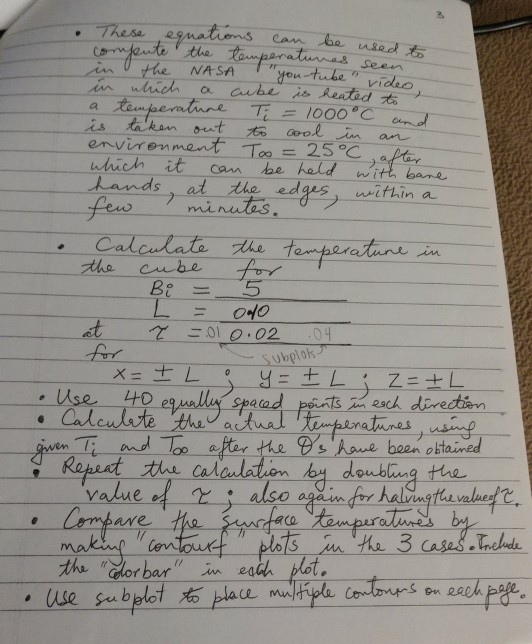 3
• These equations can be used to
compute the temperatures seen
in the NASA "you-tube" video,
in which a cube is heated to
a temperature Ti = 1000°C and
is taken out to cool in an
environment T∞ = 25°C, after
which it can be held with bare
hands, at the edges, within a
few minutes.
• Calculate the temperature in
the cube for
Bi = 5
L = 0.10
at τ = .01 0.02 .04
for subplots
x = ± L ; y = ± L ; z = ± L
• Use 40 equally spaced points in each direction
• Calculate the actual temperatures, using
given Ti and T∞ after the θ's have been obtained
• Repeat the calculation by doubling the
value of τ ; also again for halving the value of τ.
• Compare the surface temperatures by
making "contourf" plots in the 3 cases. Include
the "colorbar" in each plot.
• Use subplot to place multiple contours on each page.